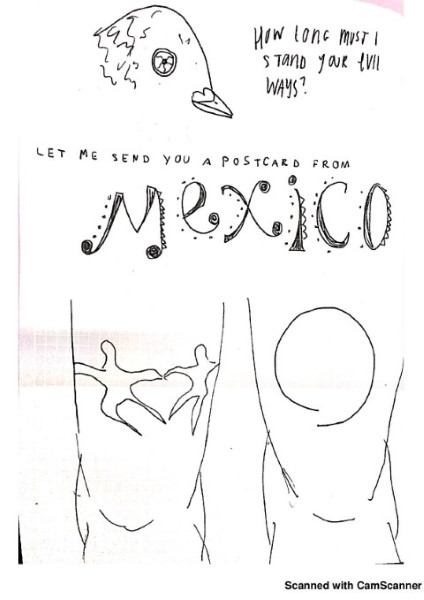 HOW LONG MUST I
STAND YOUR EVIL
WAYS?
LET ME SEND YOU A POSTCARD FROM
MEXICO
Scanned with CamScanner